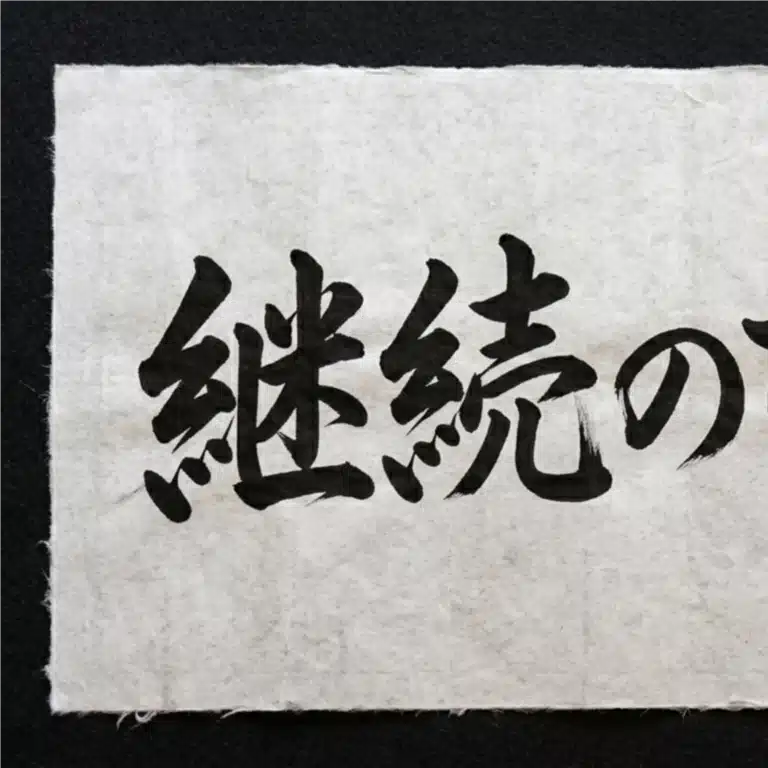 継続の